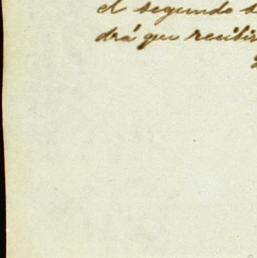 el segundo s
drá que recibir